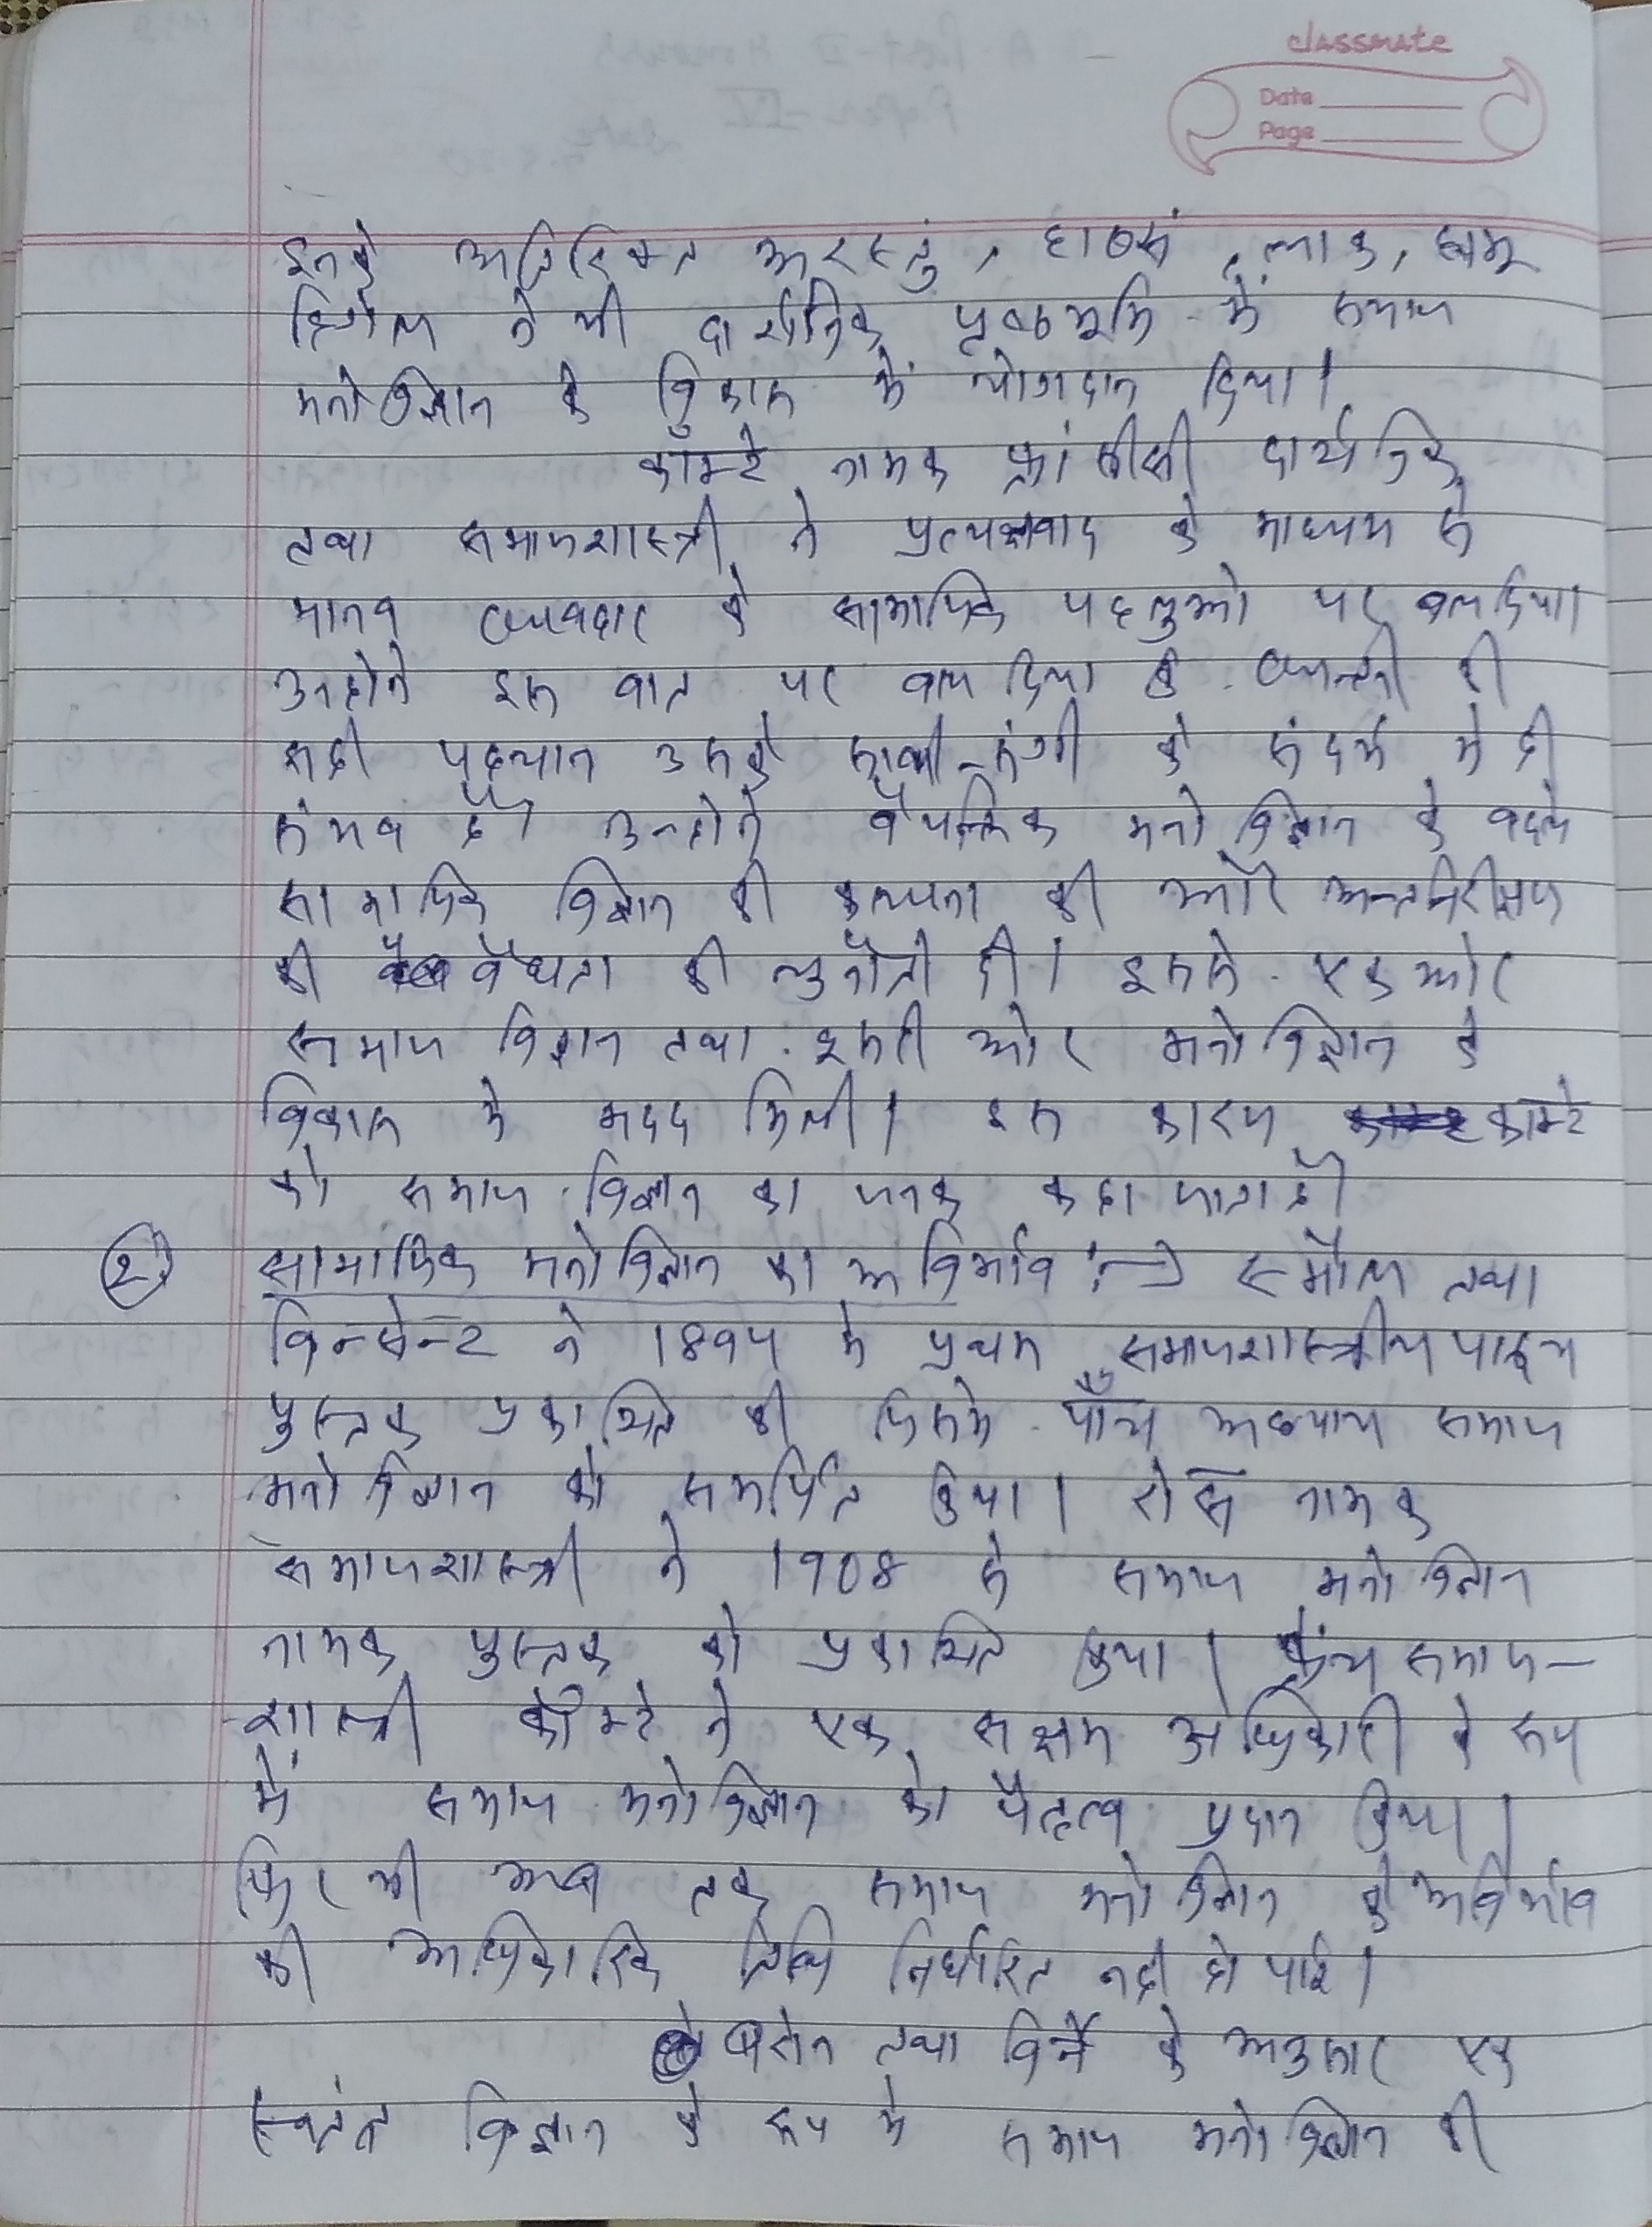 classmate
Date
Page
इनके अतिरिक्त अरस्तु, हाब्स, लाक, ह्यूम
हिगेल ने भी दार्शनिक पृष्ठभूमि में समाज
मनोविज्ञान के विकास में योगदान दिया।
कॉम्टे नामक फ्रांसीसी दार्शनिक
तथा समाजशास्त्री ने प्रत्यक्षवाद के माध्यम से
मानव व्यवहार के सामाजिक पहलुओ पर बल दिया।
उन्होने इस बात पर बल दिया कि व्यक्ती की
सही पहचान उसके साथी-संगी के संदर्भ मे ही
संभव है। उन्होने वैयक्तिक मनोविज्ञान के बदले
सामाजिक विज्ञान की कल्पना की और अन्तर्निरीक्षण
की वैधता की चुनौती दी। इससे एक ओर
समाज विज्ञान तथा दूसरी ओर मनोविज्ञान के
विकास मे मदद मिली। इस कारण काम्टे
को समाज विज्ञान का जनक कहा जाता है।
2) सामाजिक मनोविज्ञान का अविर्भाव :→ स्मौल तथा
विन्सेन्ट ने 1894 मे प्रथम समाजशास्त्रीय पाठ्य
पुस्तक प्रकाशित की जिसमे पाँच अध्याय समाज
मनोविज्ञान को समर्पित किया। रोस नामक
समाजशास्त्री ने 1908 मे समाज मनोविज्ञान
नामक पुस्तक को प्रकाशित किया। फ्रेंच समाज-
शास्त्री कॉम्टे ने एक सक्षम अधिकारी के रूप
में समाज मनोविज्ञान को पैतृत्व प्रदान किया।
फिर भी अब तक समाज मनोविज्ञान के अविर्भाव
की आधिकारिक तिथि निर्धारित नही हो पाई।
तथा के अनुसार एक
स्वतंत्र विज्ञान के रूप मे समाज मनोविज्ञान की